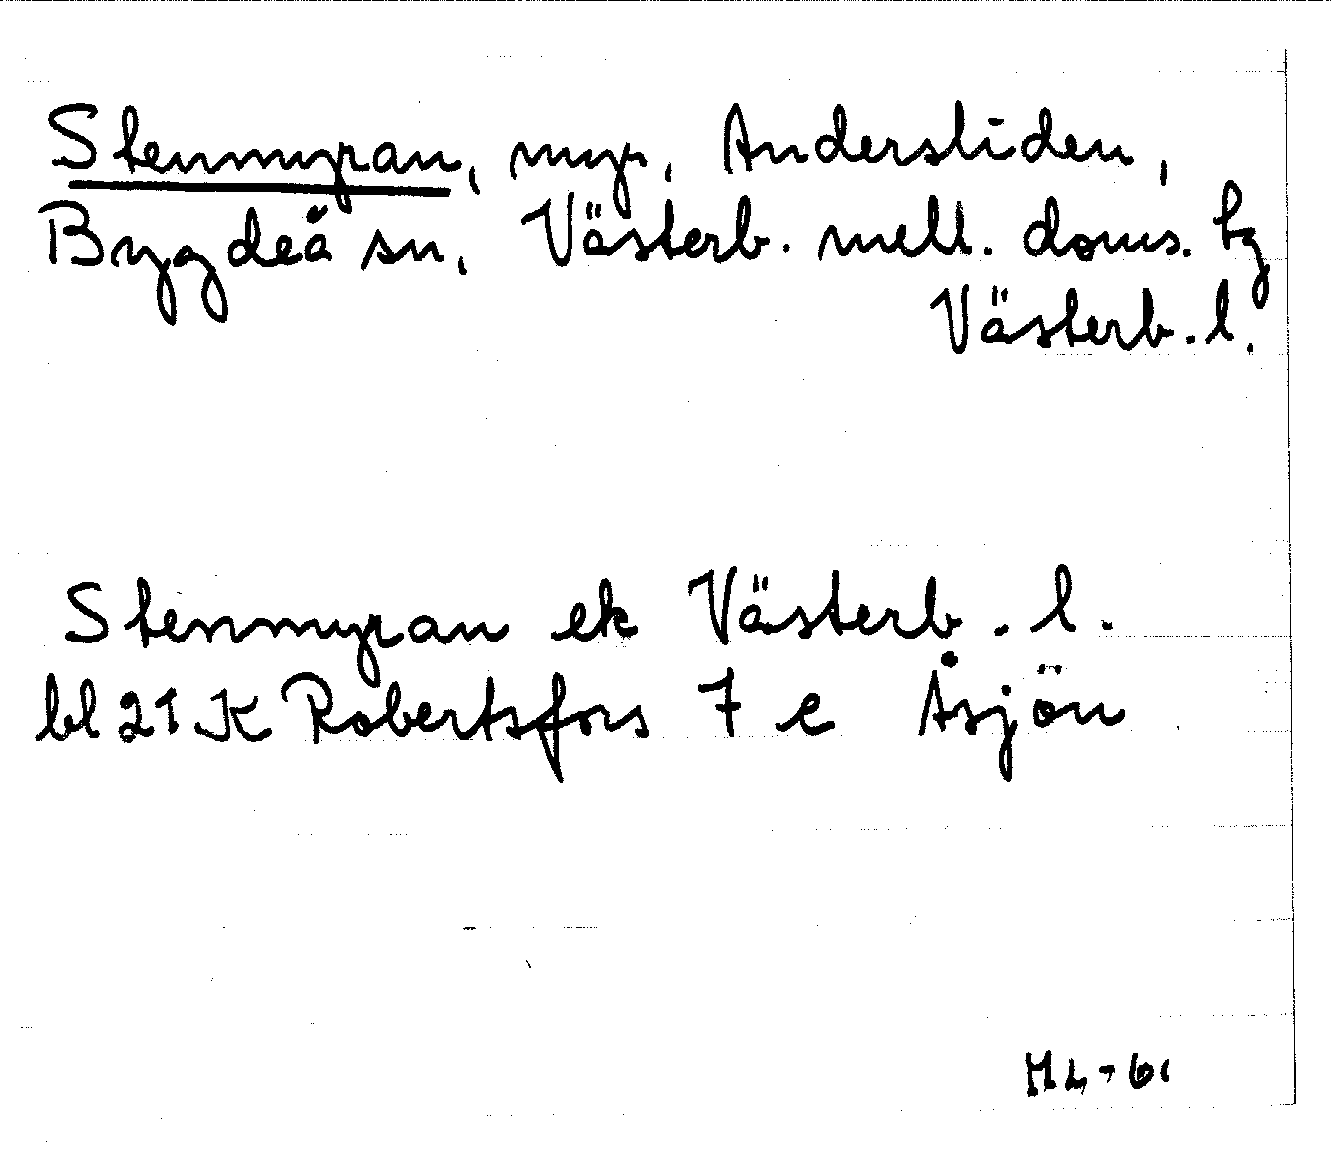 Stenmyran, myr, Andersliden,
Bygdeå sn, Västerb. mell. doms. tg
Västerb. l.
Stenmyran ek Västerb. l.
bl 21 K Robertsfors 7 e Åsjön
ML-61